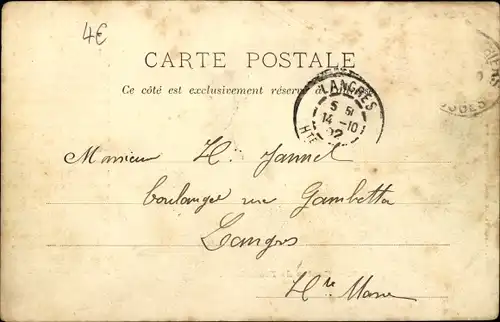 4€
CARTE POSTALE
Ce côté est exclusivement réservé à
LANGRES
5 E/
14 -10
02
HTE
Monsieur H. Jannel
boulanger rue Gambetta
Langres
Hte Marne